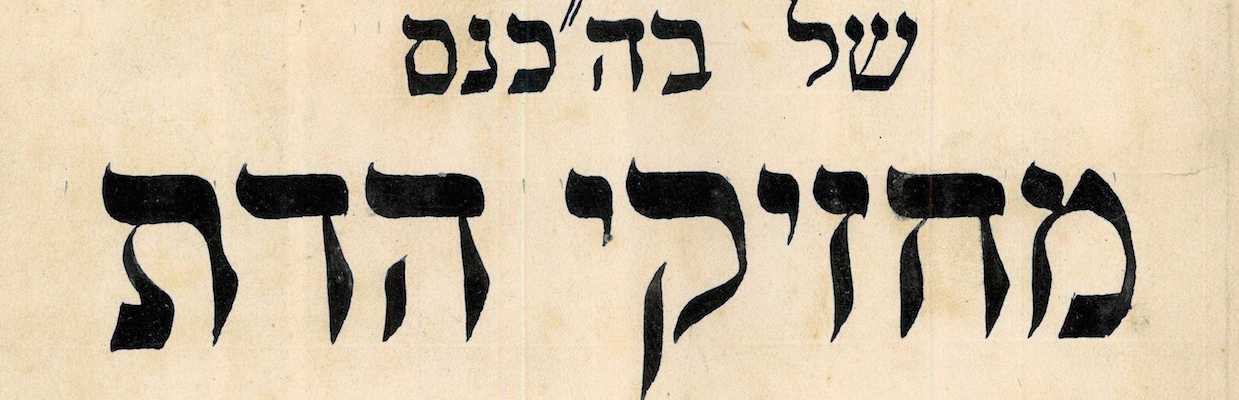 של בה״כנס
מחזיקי הדת